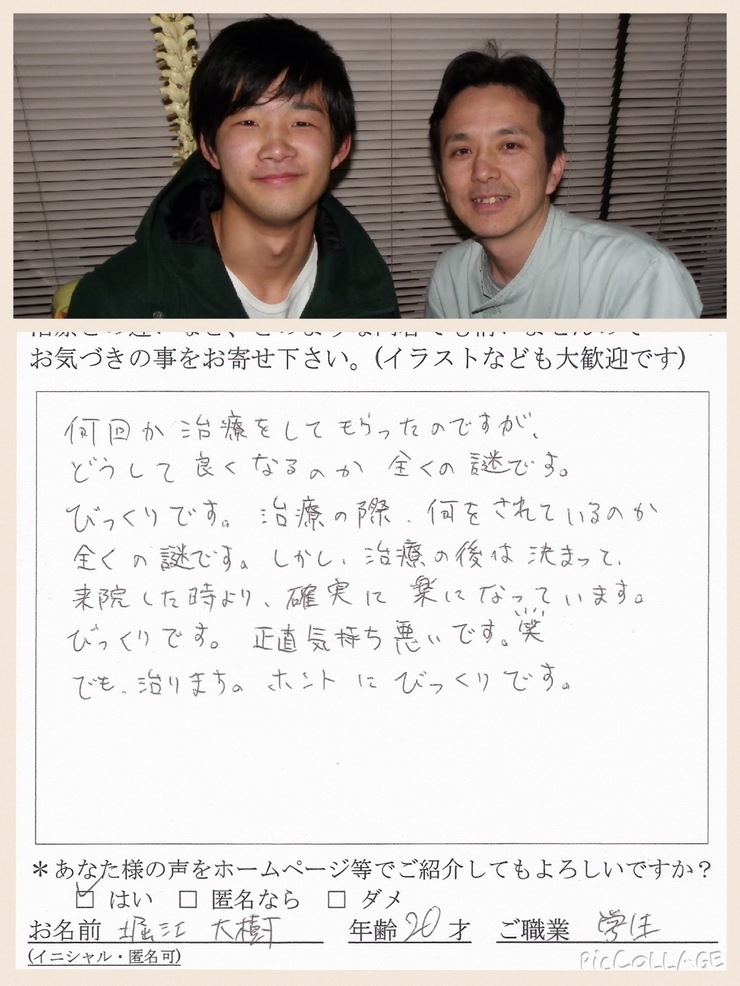 お気づきの事をお寄せ下さい。(イラストなども大歓迎です)
何回か治療をしてもらったのですが、
どうして良くなるのか 全くの謎です。
びっくりです。治療の際、何をされているのか
全くの謎です。しかし、治療の後は決まって、
来院した時より、確実に楽になっています。
びっくりです。正直気持ち悪いです。笑
でも、治ります。ホントにびっくりです。
*あなた様の声をホームページ等でご紹介してもよろしいですか?
☑ はい □ 匿名なら □ ダメ
お名前 堀江 大樹 年齢 20 才 ご職業 学生
(イニシャル・匿名可)
PicCOLLAGE